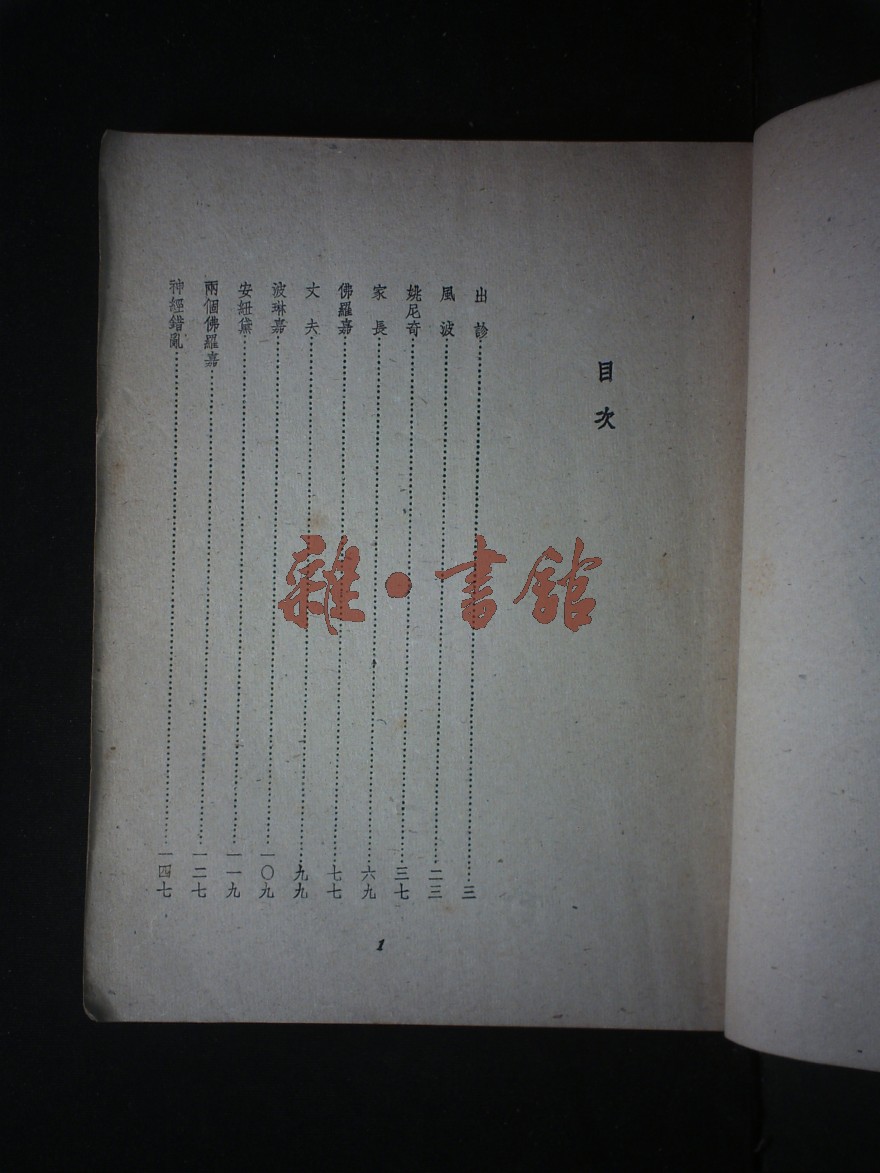 目次
出診………三
風波………二三
姚尼奇………三七
家長………六九
佛羅嘉………七七
丈夫………九九
波琳嘉………一〇九
安紐黛………一一九
兩個佛羅嘉………一二七
神經錯亂………一四七
1
雜·書館